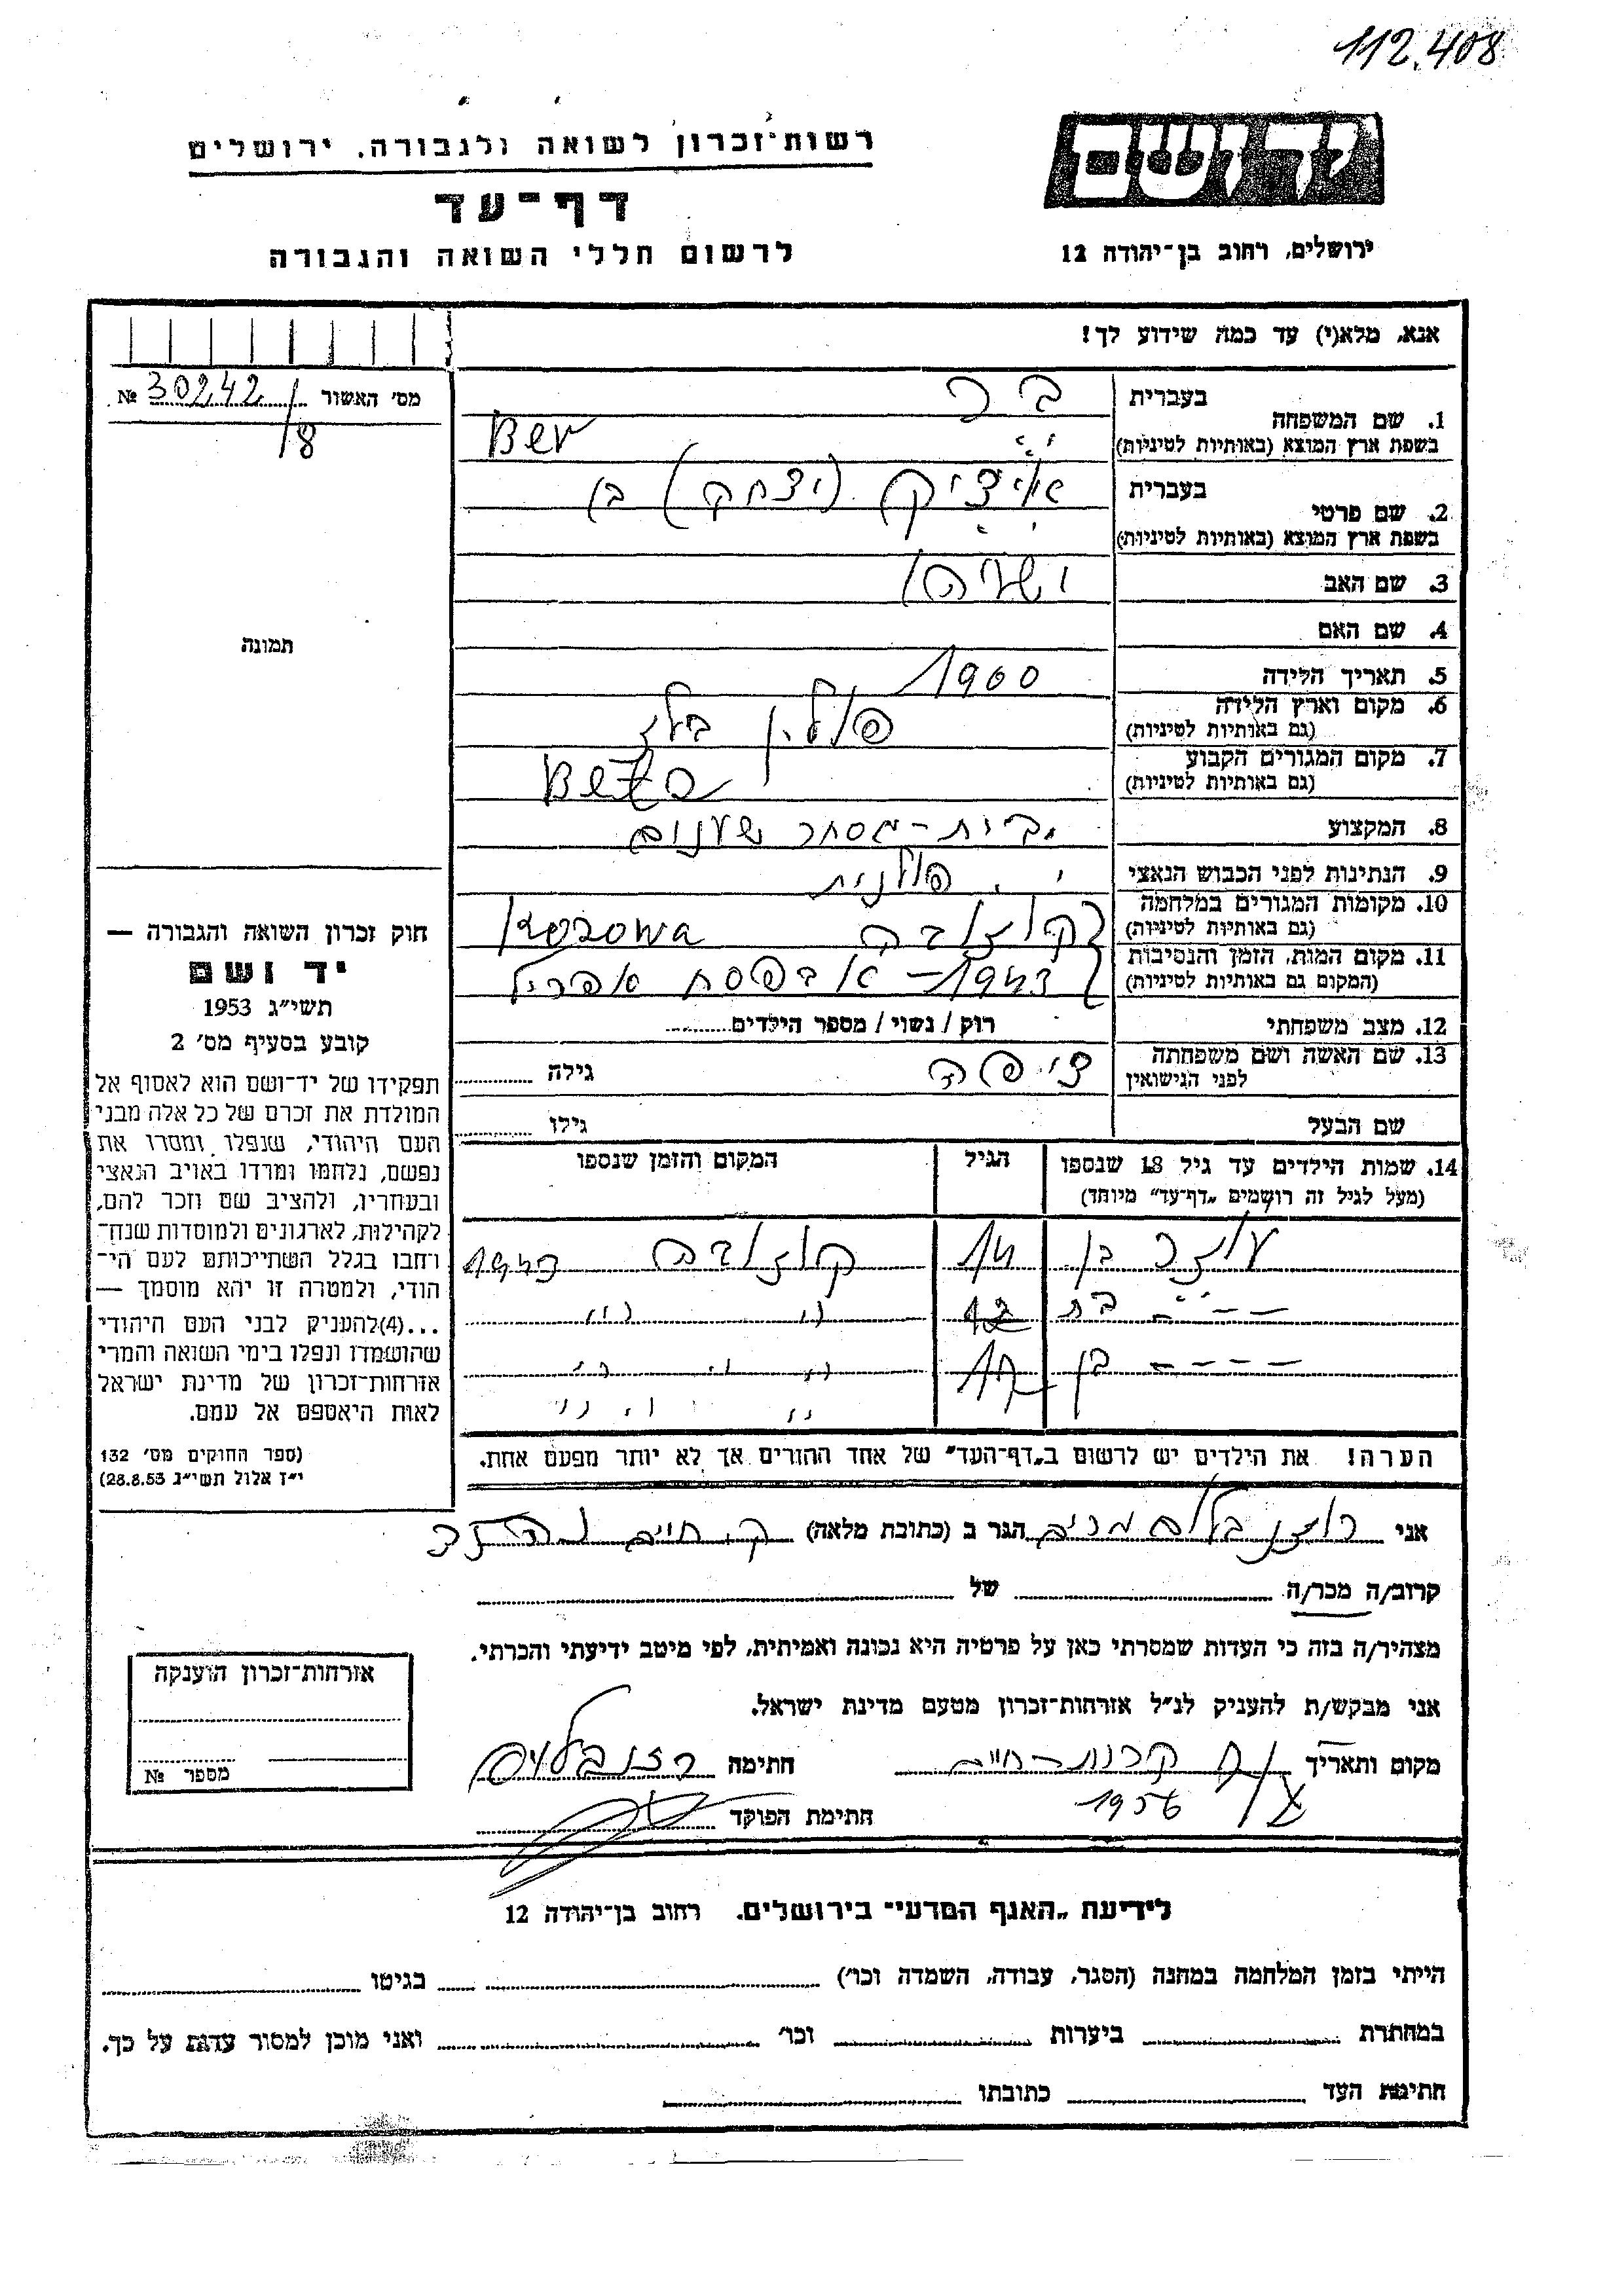 112.408
רשות־זכרון לשואה ולגבורה, ירושלים
דף־עד
לרשום חללי השואה והגבורה
יד ושם
ירושלים, רחוב בן־יהודה 12
אנא, מלא(י) עד כמה שידוע לך!
מס' האשור 30242 №
/8
תמונה
1. שם המשפחה
בעברית בר
בשפת ארץ המוצא (באותיות לטיניות) Ber
2. שם פרטי
בעברית איציק (יצחק) בן
בשפת ארץ המוצא (באותיות לטיניות)
3. שם האב
4. שם האם
5. תאריך הלידה 1900
6. מקום וארץ הלידה פולין בלז
(גם באותיות לטיניות)
7. מקום המגורים הקבוע
(גם באותיות לטיניות)
8. המקצוע בית-מסחר שענום
9. הנתינות לפני הכבוש הנאצי פולנית
10. מקומות המגורים במלחמה קוזובה Kozowa
(גם באותיות לטיניות)
11. מקום המות, הזמן והנסיבות 1943 - א בפסח אפריל
(המקום גם באותיות לטיניות)
12. מצב משפחתי רוק / נשוי / מספר הילדים
13. שם האשה ושם משפחתה ציפה גילה
לפני הנישואין
שם הבעל גילו
14. שמות הילדים עד גיל 18 שנספו הגיל המקום והזמן שנספו
(מעל לגיל זה רושמים „דף־עד" מיוחד)
עוזר בן 14 קוזובה 1943
– – " – בת 12 " "
– – – – בן " " "
" " "
הערה! את הילדים יש לרשום ב„דף־העד" של אחד ההורים אך לא יותר מפעם אחת.
חוק זכרון השואה והגבורה —
יד ושם
תשי"ג 1953
קובע בסעיף מס' 2
תפקידו של יד־ושם הוא לאסוף אל
המולדת את זכרם של כל אלה מבני
העם היהודי, שנפלו ומסרו את
נפשם, נלחמו ומרדו באויב הנאצי
ובעוזריו, ולהציב שם וזכר להם,
לקהילות, לארגונים ולמוסדות שנח־
רחבו בגלל השתייכותם לעם הי־
הודי, ולמטרה זו יהא מוסמך —
...(4)להעניק לבני העם היהודי
שהושמדו ונפלו בימי השואה והמרי
אזרחות־זכרון של מדינת ישראל
לאות היאספם אל עמם.
(ספר החוקים מס' 132
י"ז אלול תשי"ג 28.8.53)
אני רוזנבלום מרים הגר ב (כתובת מלאה) ק. חיים
קרוב/ה מכר/ה של
מצהיר/ה בזה כי העדות שמסרתי כאן על פרטיה היא נכונה ואמיתית, לפי מיטב ידיעתי והכרתי.
אני מבקש/ת להעניק לנ"ל אזרחות־זכרון מטעם מדינת ישראל.
מקום ותאריך קרית-חיים חתימה רוזנבלום
1956 חתימת הפוקד
אזרחות־זכרון הוענקה
מספר №
לידיעת „האגף המדעי" בירושלים. רחוב בן־יהודה 12
הייתי בזמן המלחמה במחנה (הסגר, עבודה, השמדה וכו') בגיטו
במחתרת ביערות וכו' ואני מוכן למסור עדות על כך.
חתימת העד כתובתו